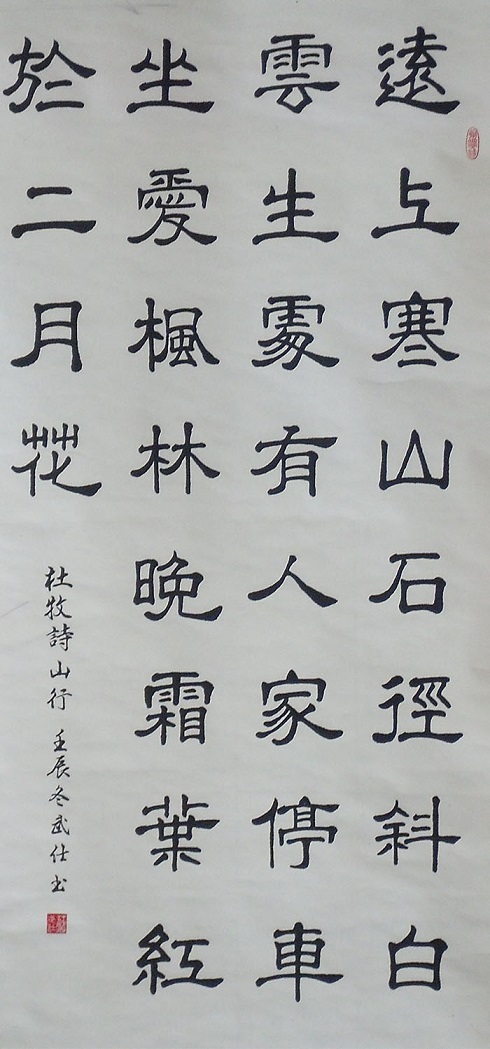 遠上寒山石徑斜白
雲生處有人家停車
坐愛楓林晚霜葉紅
於二月花
杜牧詩山行 壬辰冬武仕书